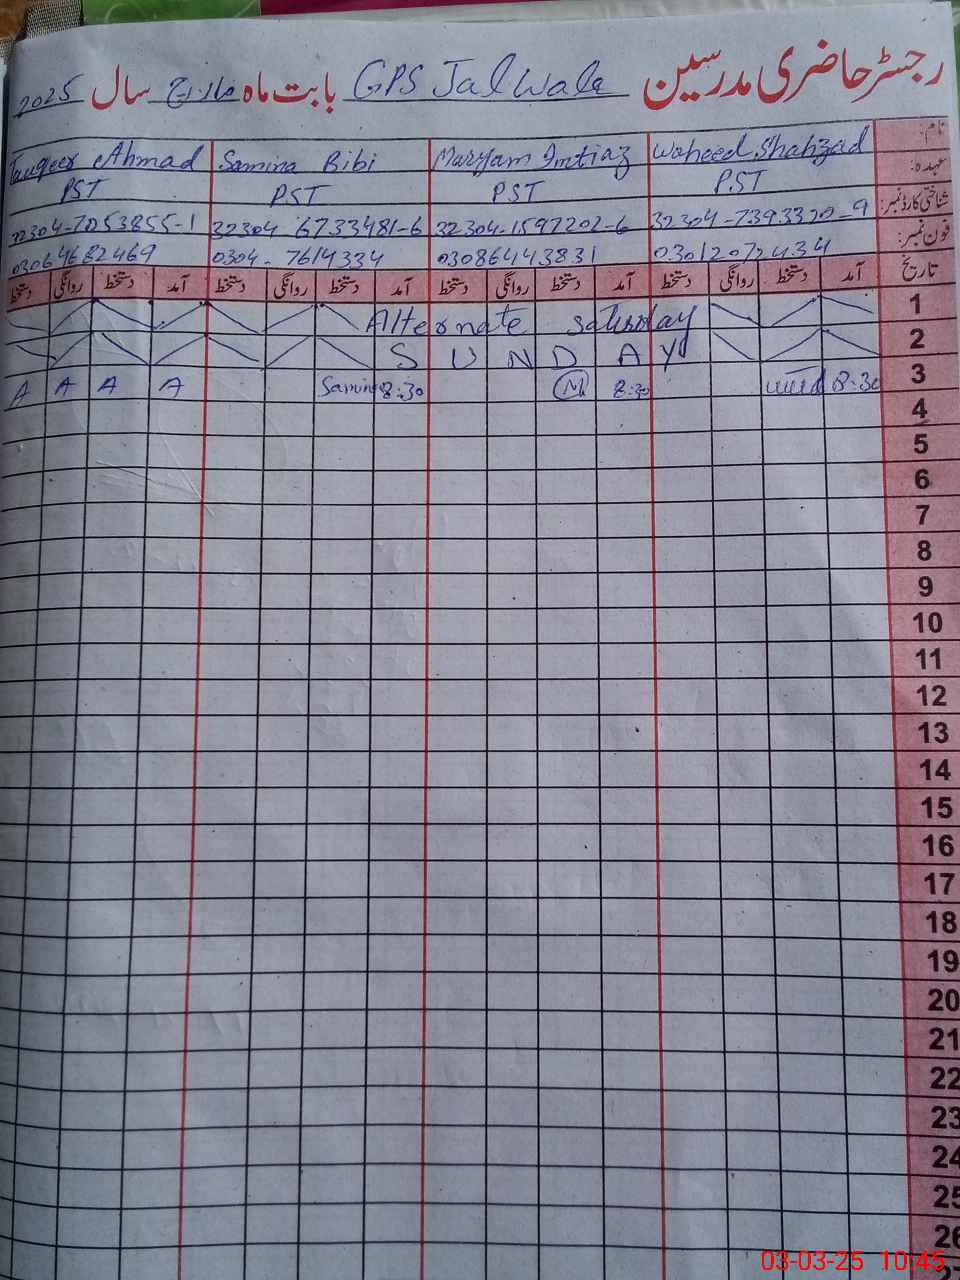 رجسٹر حاضری مدرسین GPS Jalwala بابت ماہ مارچ سال 2025
نام: Waheed Shahzad Maryam Imtiaz Samina Bibi Tauqeer Ahmad
عہدہ: PST PST PST PST
شناختی کارڈ نمبر: 32304-7393320-9 32304-1597202-6 32304 6733481-6 32304-7053855-1
فون نمبر: 03012072434 03086443831 0304-7614334 03064682469
تاریخ آمد دستخط روانگی دستخط آمد دستخط روانگی دستخط آمد دستخط روانگی دستخط آمد دستخط روانگی دستخط
1 Alternate saturday
2 SUNDAY
3 8:30 8:30 M 8:30 Samina A A A A
4
5
6
7
8
9
10
11
12
13
14
15
16
17
18
19
20
21
22
23
24
25
26
27
03-03-25 10:45